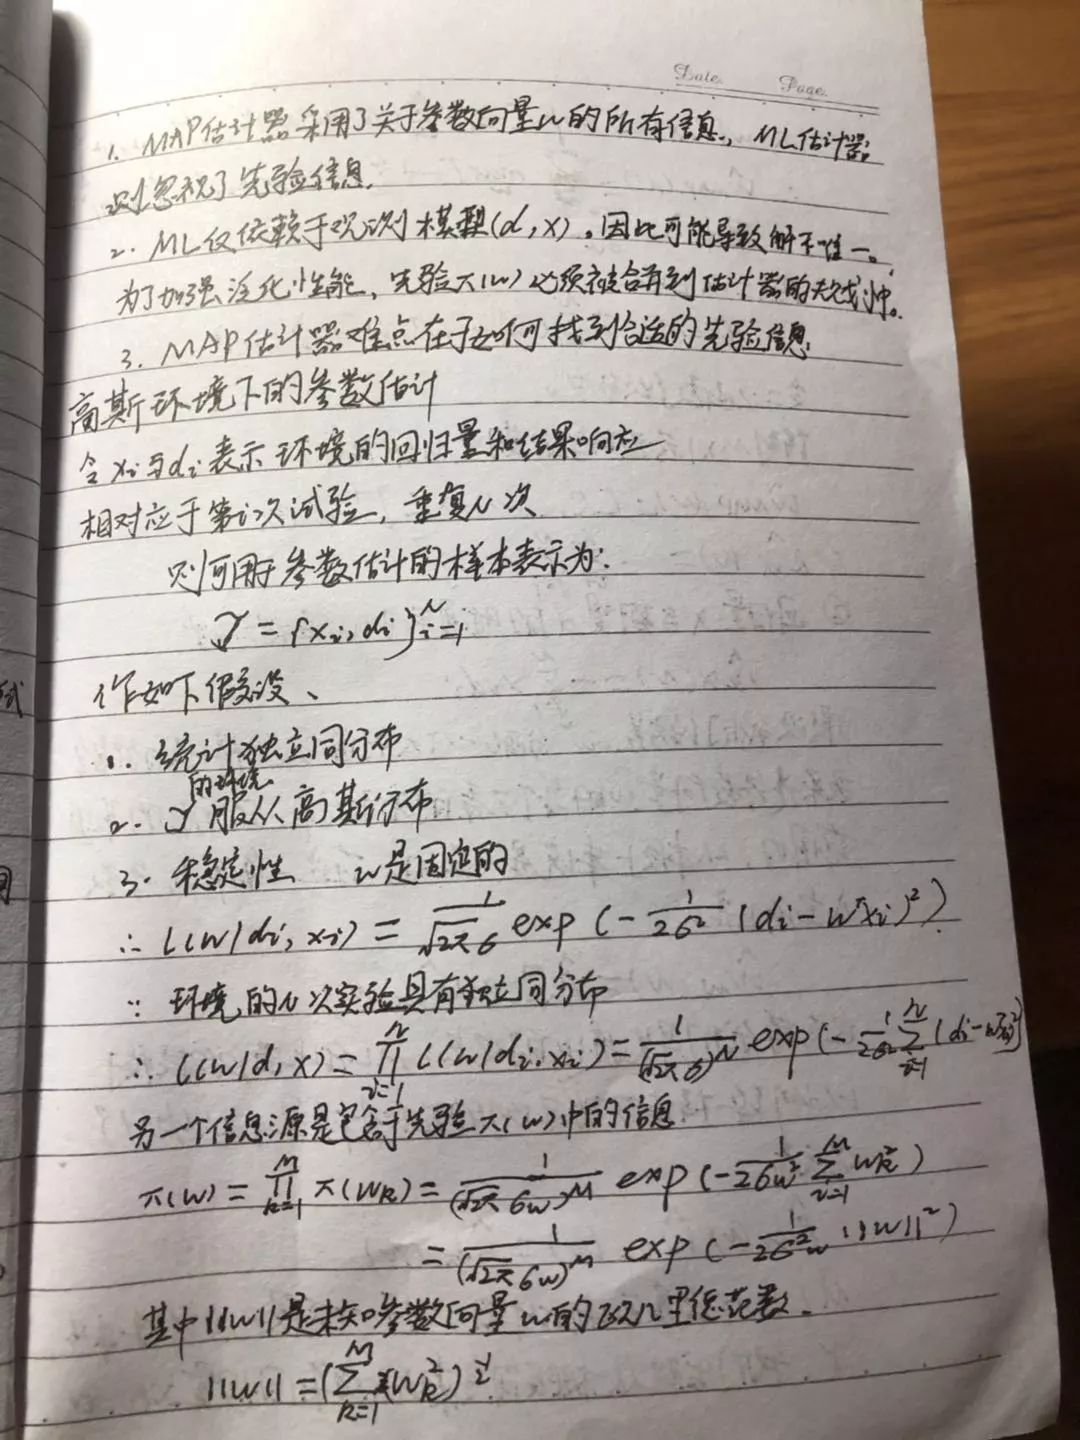 Date. Page.
1. MAP估计器采用了关于参数向量w的所有信息,ML估计器
则忽视了先验信息.
2. ML仅依赖于观测模型(d,x)。因此可能导致解不唯一。
为了加强泛化性能,先验π(w)必须被合并到估计器的中。
3. MAP估计器难点在于如何找到合适的先验信息.
高斯环境下的参数估计
令xi与di表示环境的回归量和结果响应
相对应于第i次试验,重复N次
则可用于参数估计的样本表示为:
𝒥 = {xi, di}ᴺi=1
作如下假设、
1. 统计独立同分布
的环境
2. 𝒥服从高斯分布
3. 稳定性 w是固定的
∴ l(w|di, xi) = 1/(√2π σ) exp(-1/(2σ²) (di-wᵀxi)²)
∵ 环境的N次实验具有独立同分布
∴ l(w|d,x) = ∏ᴺi=1 l(w|di,xi) = 1/(√2π σ)ᴺ exp(-1/(2σ²) ∑ᴺi=1 (di-wᵀxi)²)
另一个信息源是包含于先验π(w)中的信息
π(w) = ∏ᴹk=1 π(wk) = 1/(√2π σw)ᴹ exp(-1/(2σw²) ∑ᴹi=1 wk²)
= 1/(√2π σw)ᴹ exp(-1/(2σ²w) ||w||²)
其中||w||是未知参数向量w的欧几里德范数.
||w|| = (∑ᴹk=1 wk²)^½